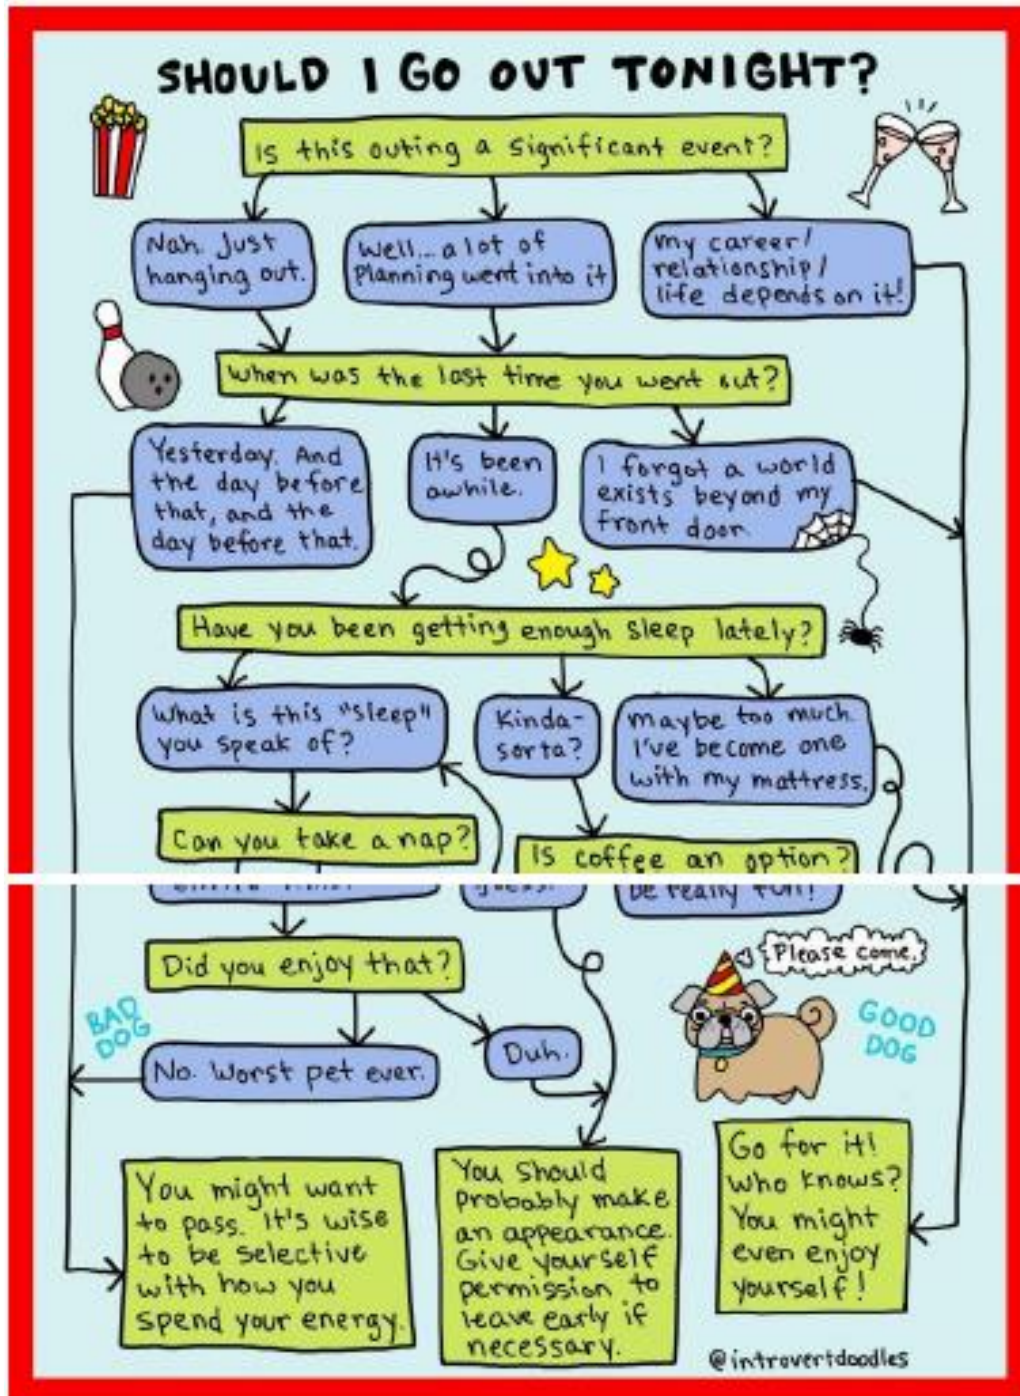 SHOULD I GO OUT TONIGHT?
Is this outing a significant event?
Nah. Just
hanging out.
Well... a lot of
Planning went into it
my career/
relationship/
life depends on it!
When was the last time you went out?
Yesterday. And
the day before
that, and the
day before that.
It's been
awhile.
I forgot a world
exists beyond my
front door.
Have you been getting enough sleep lately?
What is this "sleep"
you speak of?
Kinda-
sorta?
maybe too much.
I've become one
with my mattress.
Can you take a nap?
Is coffee an option?
be really fun!
Did you enjoy that?
Please come.
BAD
DOG
GOOD
DOG
No. Worst pet ever.
Duh.
You might want
to pass. It's wise
to be selective
with how you
spend your energy.
You should
probably make
an appearance.
Give yourself
permission to
leave early if
necessary.
Go for it!
Who knows?
You might
even enjoy
yourself!
@introvertdoodles